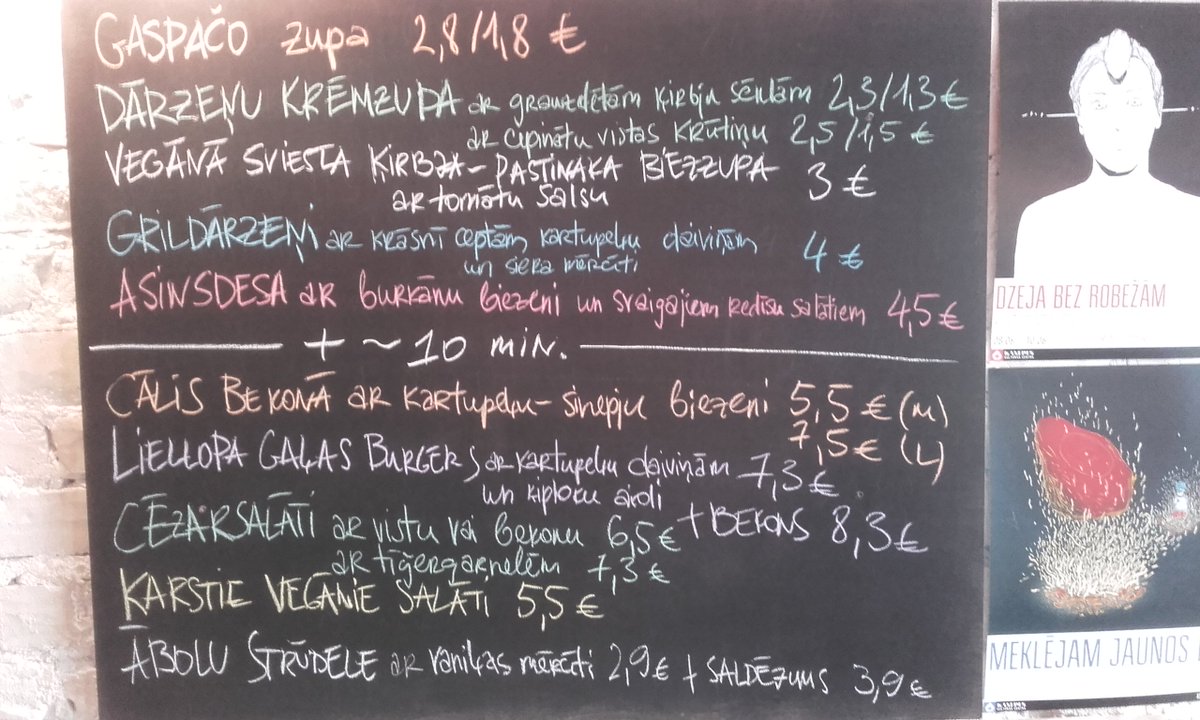 GASPAČO zupa 2,8/1,8 €
DĀRZEŅU KRĒMZUPA ar grauzdētām ķirbju sēklām 2,3/1,3 €
ar cepinātu vistas krūtiņu 2,5/1,5 €
VEGĀNĀ SVIESTA ĶIRBJA-PASTINAKA BIEZZUPA 3 €
ar tomātu salsu
GRILDĀRZEŅI ar krāsnī ceptām kartupeļu daiviņām 4 €
un siera mērcīti
ASINSDESA ar burkānu biezeni un svaigajiem redīsu salātiem 4,5 €
+ ~10 min.
CĀLIS BEKONĀ ar kartupeļu-sinepju biezeni 5,5 € (M)
7,5 € (L)
LIELLOPA GAĻAS BURGERS ar kartupeļu daiviņām 7,3 €
un ķiploku aioli
+ BEKONS 8,3 €
CĒZARSALĀTI ar vistu vai bekonu 6,5 €
ar tīģergarnelēm 7,3 €
KARSTIE VEGĀNIE SALĀTI 5,5 €
ĀBOLU STRŪDELE ar vaniļas mērcīti 2,9 € + SALDĒJUMS 3,9 €
DZEJA BEZ ROBEŽĀM
MEKLĒJAM JAUNOS